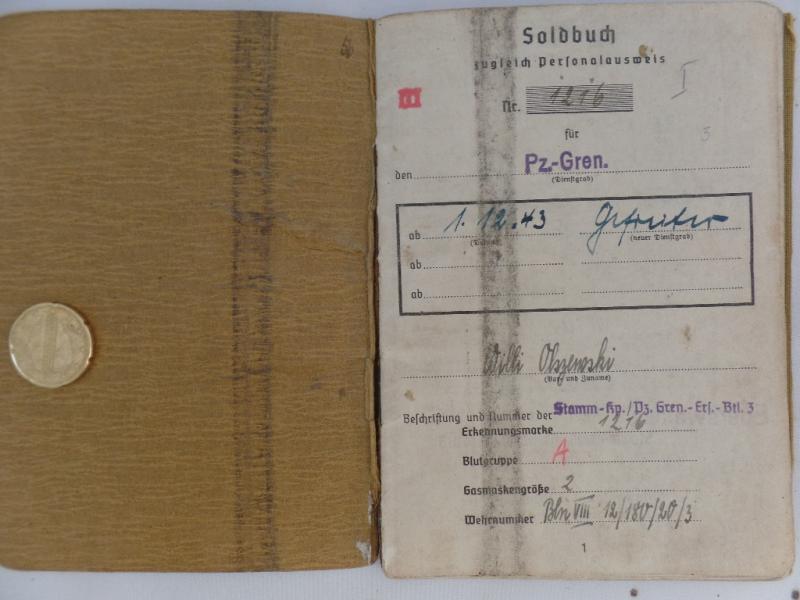 Soldbuch
zugleich Personalausweis
I
Nr. 1216
3
für
den Pz.-Gren.
(Dienstgrad)
ab 1.12.43 Gefreiter
(Datum) (neuer Dienstgrad)
ab
ab
Willi Olszewski
(Vor- und Zuname)
Beschriftung und Nummer der Stamm-Kp./Pz. Gren.-Ers.-Btl. 3
Erkennungsmarke 1216
Blutgruppe A
Gasmaskengröße 2
Wehrnummer Bln VIII 12/180/20/3
1